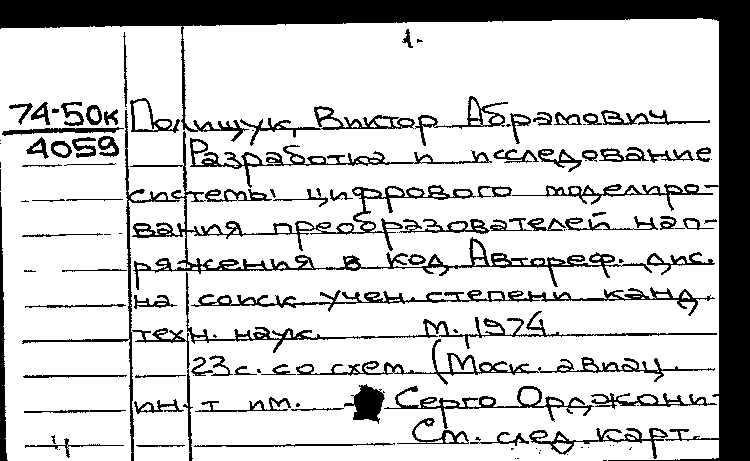 1.
74-50к
4059
Полищук, Виктор Абрамович
Разработка и исследование
системы цифрового моделиро-
вания преобразователей нап-
ряжения в код. Автореф. дис.
на соиск учен. степени канд.
техн. наук. М., 1974.
23 с. со схем. (Моск. авиац.
ин-т им. Серго Орджони-
См. след. карт.